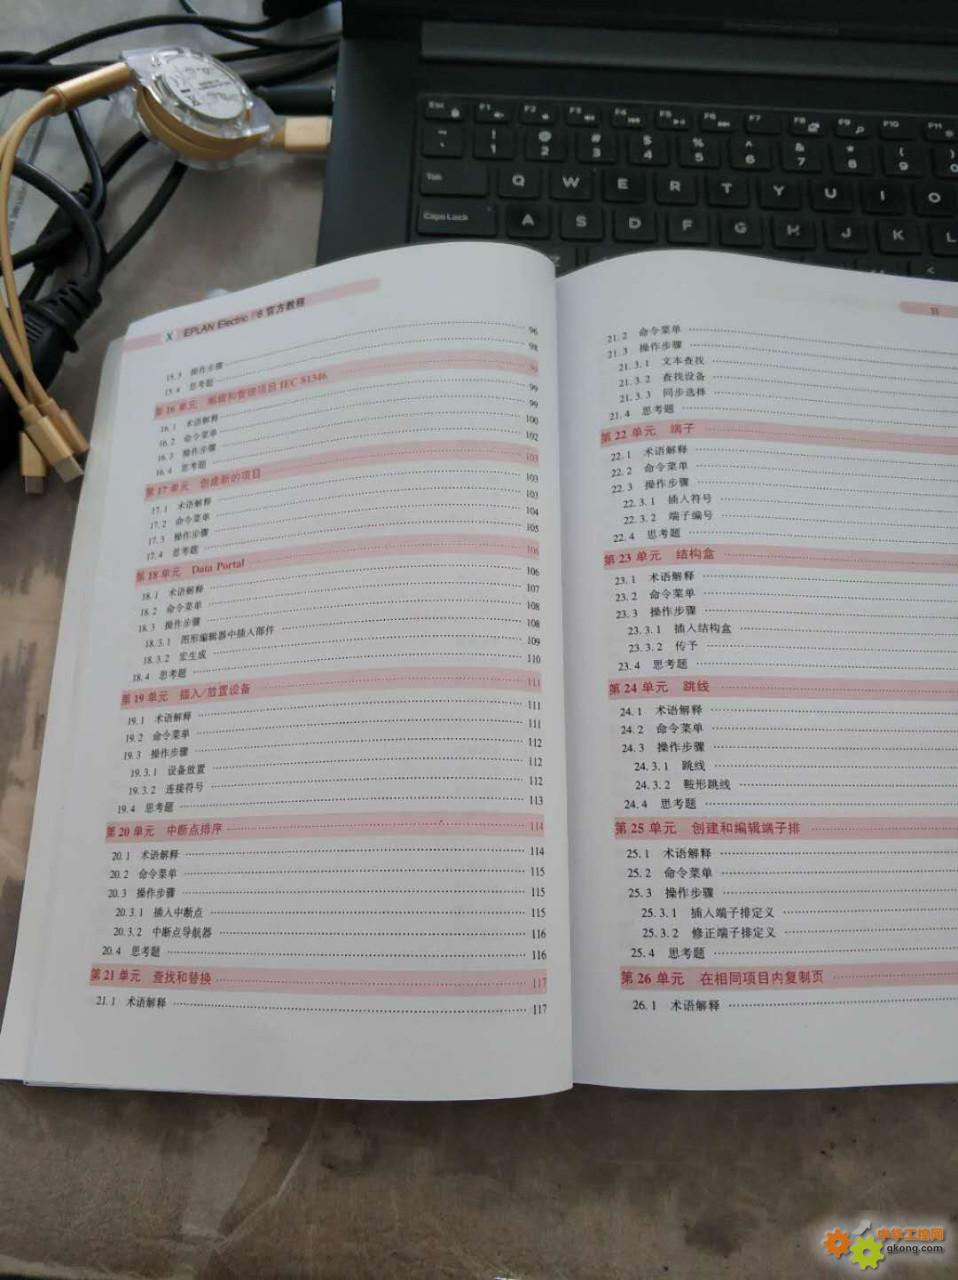 Esc F1 F2 F3 F4 F5 F6 F7 F8 F9 F10 F11
~ ! @ # $ % ^ & * ( )
` 1 2 3 4 5 6 7 8 9 0
Tab Q W E R T Y U I O
Caps Lock A S D F G H J K L
X EPLAN Electric P8 官方教程
15.3 操作步骤 96
15.4 思考题 98
第16单元 编辑和管理项目 IEC 81346 99
16.1 术语解释 99
16.2 命令菜单 99
16.3 操作步骤 100
16.4 思考题 102
第17单元 创建新的项目 103
17.1 术语解释 103
17.2 命令菜单 103
17.3 操作步骤 104
17.4 思考题 105
第18单元 Data Portal 106
18.1 术语解释 106
18.2 命令菜单 107
18.3 操作步骤 108
18.3.1 图形编辑器中插入部件 108
18.3.2 宏生成 109
18.4 思考题 110
第19单元 插入/放置设备 111
19.1 术语解释 111
19.2 命令菜单 111
19.3 操作步骤 112
19.3.1 设备放置 112
19.3.2 连接符号 112
19.4 思考题 113
第20单元 中断点排序 114
20.1 术语解释 114
20.2 命令菜单 115
20.3 操作步骤 115
20.3.1 插入中断点 115
20.3.2 中断点导航器 116
20.4 思考题 116
第21单元 查找和替换 117
21.1 术语解释 117
21.2 命令菜单
21.3 操作步骤
21.3.1 文本查找
21.3.2 查找设备
21.3.3 同步选择
21.4 思考题
第22单元 端子
22.1 术语解释
22.2 命令菜单
22.3 操作步骤
22.3.1 插入符号
22.3.2 端子编号
22.4 思考题
第23单元 结构盒
23.1 术语解释
23.2 命令菜单
23.3 操作步骤
23.3.1 插入结构盒
23.3.2 传予
23.4 思考题
第24单元 跳线
24.1 术语解释
24.2 命令菜单
24.3 操作步骤
24.3.1 跳线
24.3.2 鞍形跳线
24.4 思考题
第25单元 创建和编辑端子排
25.1 术语解释
25.2 命令菜单
25.3 操作步骤
25.3.1 插入端子排定义
25.3.2 修正端子排定义
25.4 思考题
第26单元 在相同项目内复制页
26.1 术语解释
中华工控网
gkong.com